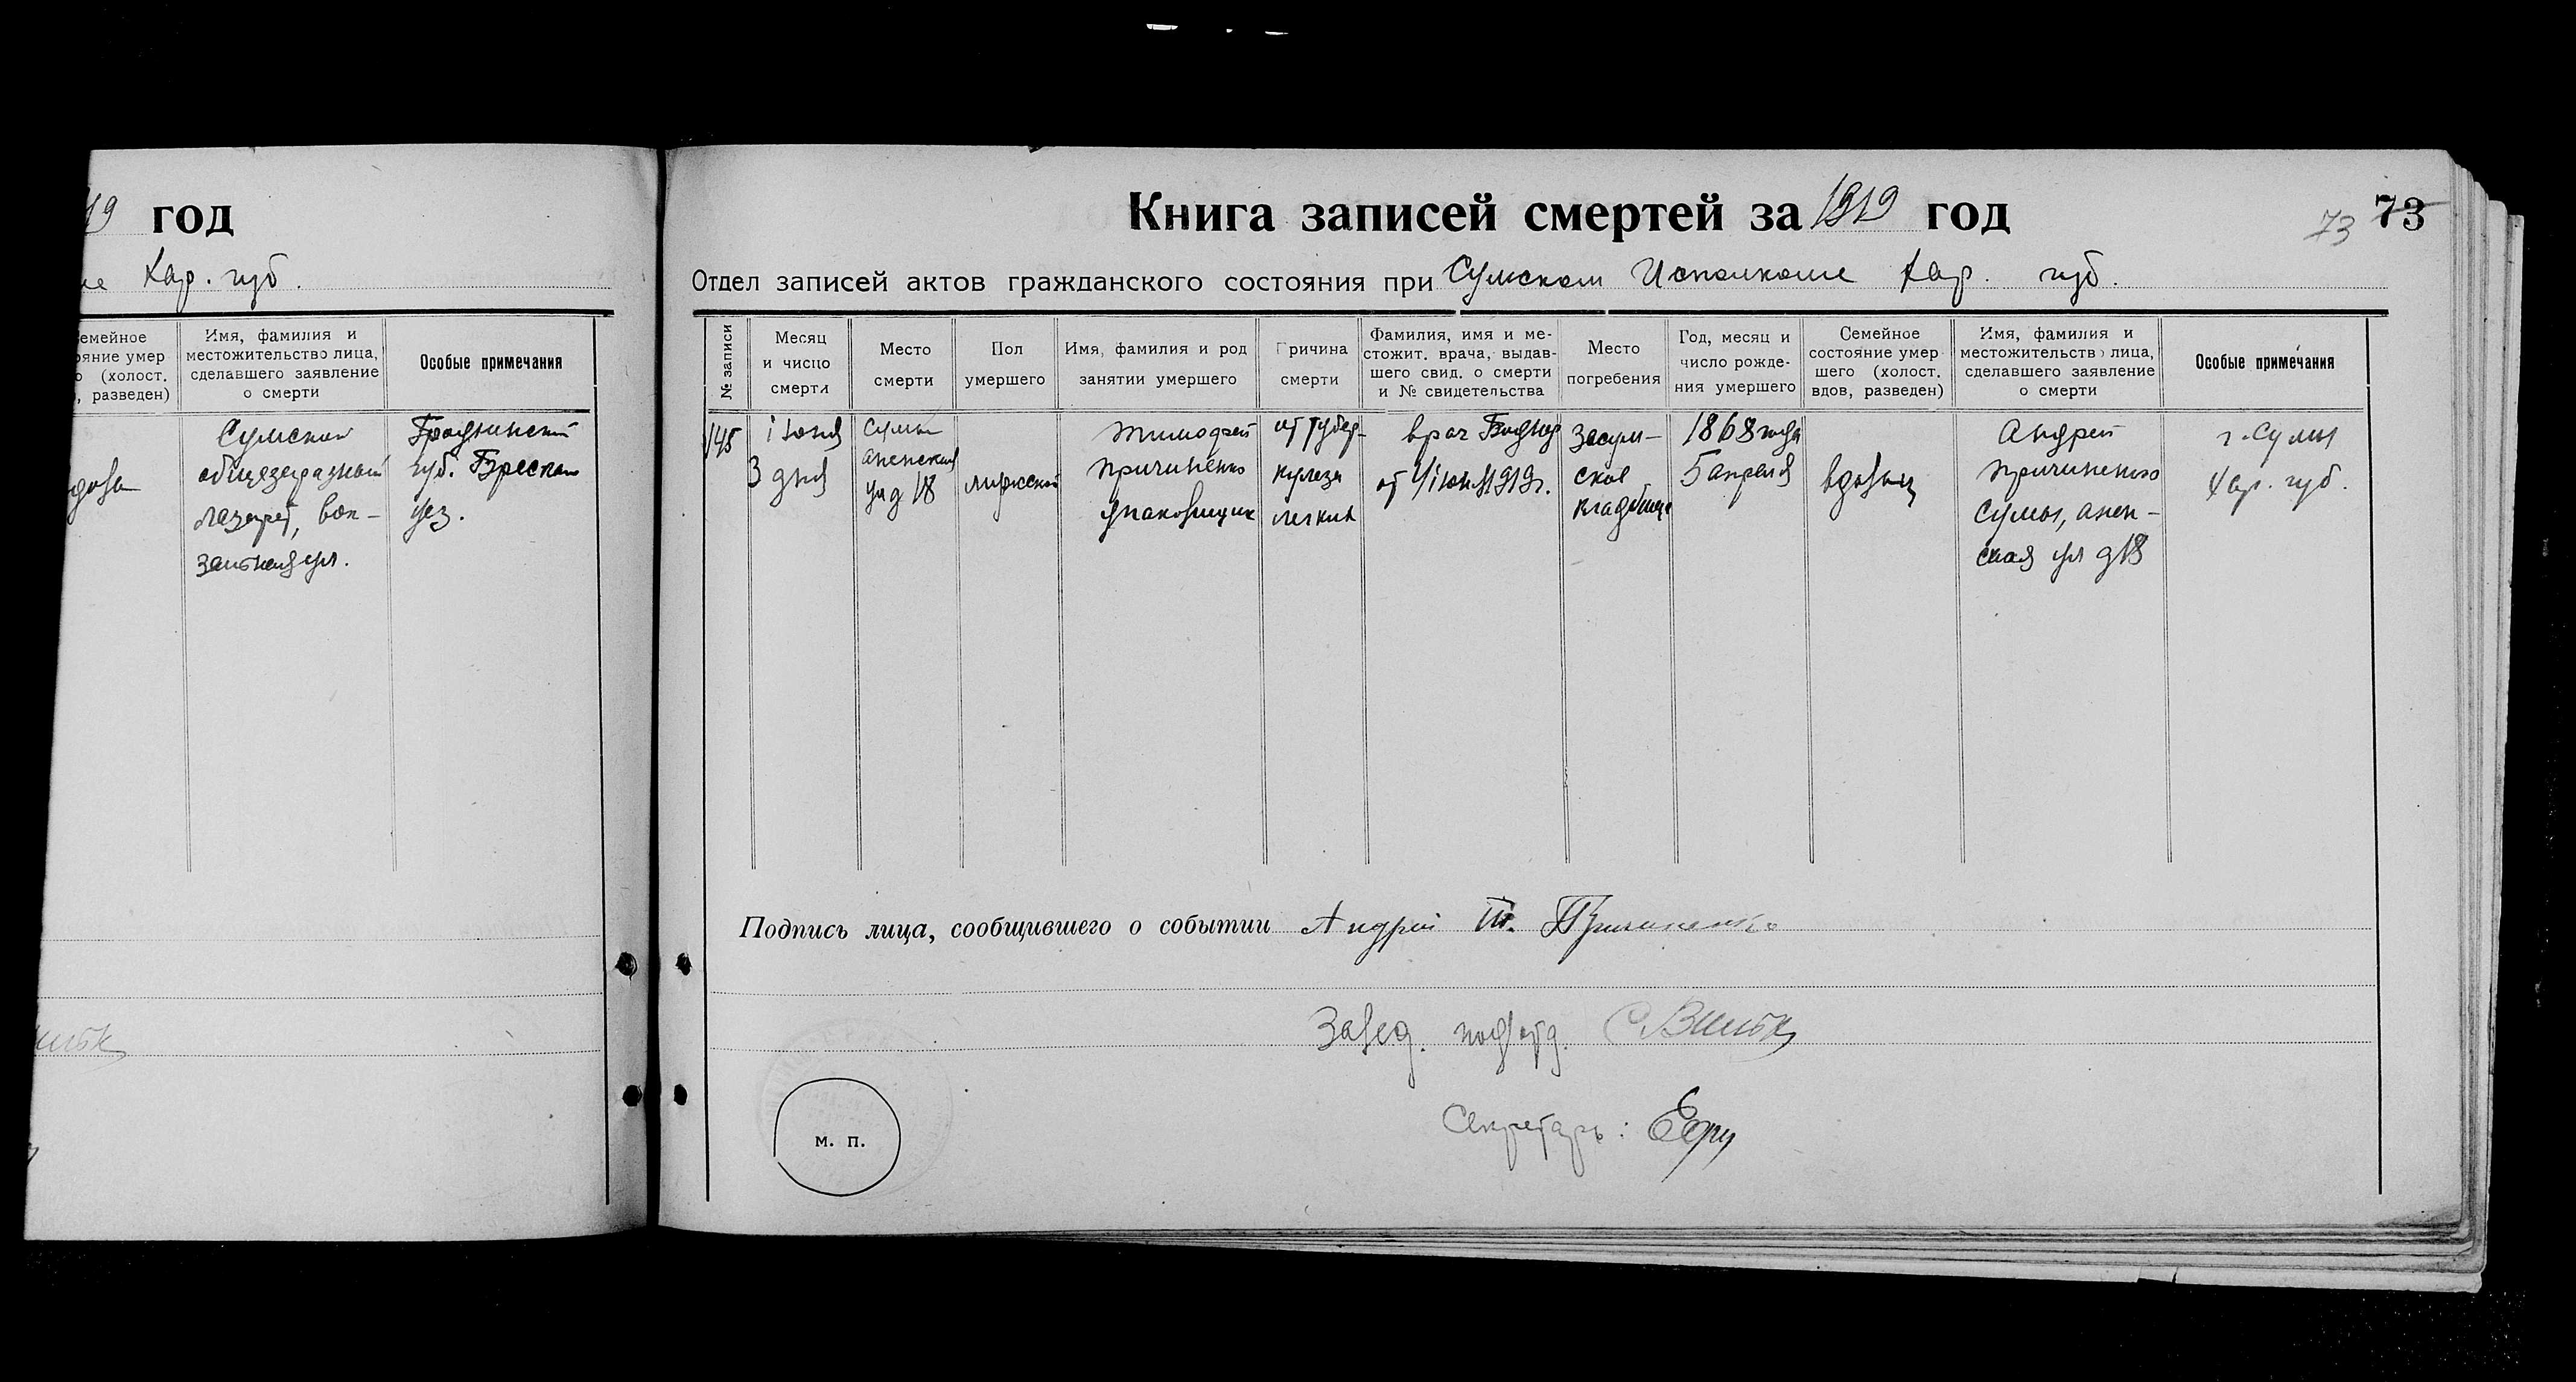 19 год
Кар. губ.
семейное
ояние умер
о (холост.
, разведен)
Имя, фамилия и
местожительство лица,
сделавшего заявление
о смерти
Особые примечания
Сумский
общезаразный
лазарет, вок-
зальная ул.
губ.
уез.
Книга записей смертей за 1919 год
73 73
Отдел записей актов гражданского состояния при Сумском Исполкоме Хар. губ.
№ записи
Месяц
и число
смерти
Место
смерти
Пол
умершего
Имя, фамилия и род
занятии умершего
Причина
смерти
Фамилия, имя и ме-
стожит. врача, выдав-
шего свид. о смерти
и № свидетельства
Место
погребения
Год, месяц и
число рожде-
ния умершего
Семейное
состояние умер
шего (холост.
вдов, разведен)
Имя, фамилия и
местожительство лица,
сделавшего заявление
о смерти
Особые примечания
145
іюня
3 дня
Сумы
аненская
ул д 18
мужской
Тимофей
Причиненко
упаковщик
от тубер-
кулеза
легких
врач
от 4 іюня 1919 г.
Засум-
ское
кладбище
1868 года
5 апреля
вдовец
Андрей
Причиненко
Сумы, анен-
ская ул д 18
г. Сумы
Хар. губ.
Подпись лица, сообщившего о событии Андрей Т. Причиненко
Завед. подотд.
Секретарь:
м. п.